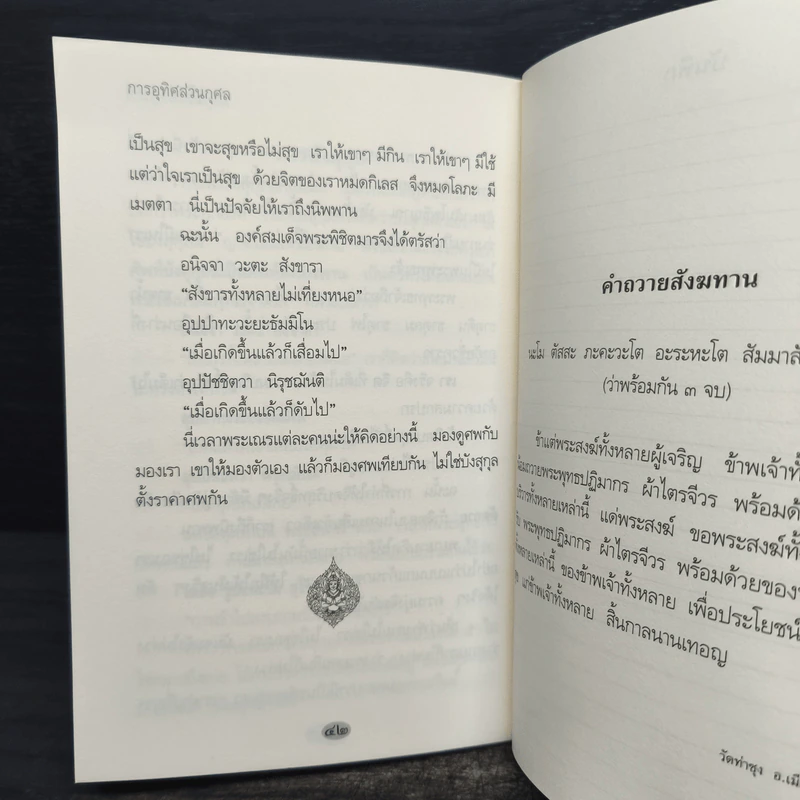 การอุทิศส่วนกุศล
เป็นสุข เขาจะสุขหรือไม่สุข เราให้เขาๆ มีกิน เราให้เขาๆ มีใช้
แต่ว่าใจเราเป็นสุข ด้วยจิตของเราหมดกิเลส จึงหมดโลภะ มี
เมตตา นี่เป็นปัจจัยให้เราถึงนิพพาน
ฉะนั้น องค์สมเด็จพระพิชิตมารจึงได้ตรัสว่า
อนิจจา วะตะ สังขารา
“สังขารทั้งหลายไม่เที่ยงหนอ”
อุปปาทะวะยะธัมมิโน
“เมื่อเกิดขึ้นแล้วก็เสื่อมไป”
อุปปัชชิตวา นิรุชฌันติ
“เมื่อเกิดขึ้นแล้วก็ดับไป”
นี่เวลาพระเณรแต่ละคนน่ะให้คิดอย่างนี้ มองดูศพกับ
มองเรา เขาให้มองตัวเอง แล้วก็มองศพเทียบกัน ไม่ใช่บังสุกุล
ตั้งราคาศพกัน
คำถวายสังฆทาน
นะโม ตัสสะ ภะคะวะโต อะระหะโต
(ว่าพร้อมกัน ๓ จบ)
ข้าแต่พระสงฆ์ทั้งหลายผู้เจริญ ข้าพเจ้า
พระพุทธปฏิมากร ผ้าไตรจีวร พร้อม
ทั้งหลายเหล่านี้ แด่พระสงฆ์ ขอพระสงฆ์
พระพุทธปฏิมากร ผ้าไตรจีวร พร้อมด้วยของ
เหล่านี้ ของข้าพเจ้าทั้งหลาย เพื่อประโยชน์
แก่ข้าพเจ้าทั้งหลาย สิ้นกาลนานเทอญ
วัดท่าซุง